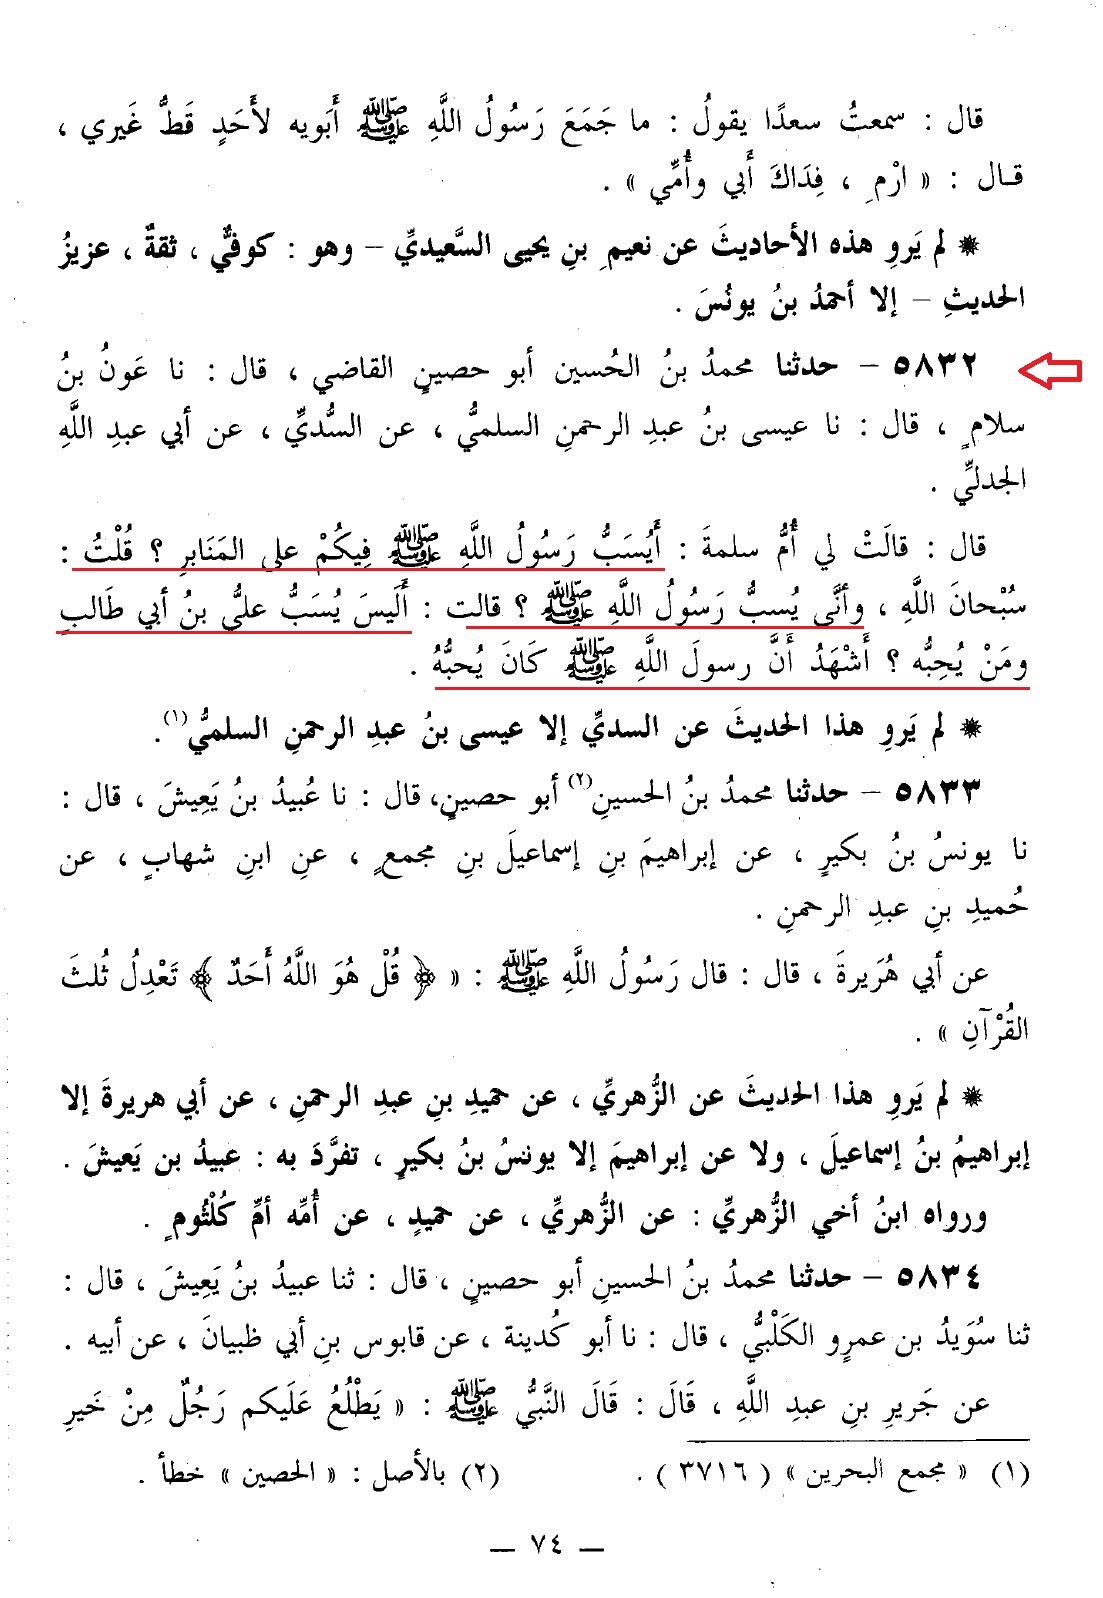 قال : سمعتُ سعدًا يقولُ : ما جَمَعَ رَسُولُ اللَّهِ ﷺ أَبَويه لأَحَدٍ قَطُّ غَيري ،
قـال : « ارْمِ ، فِدَاكَ أَبي وأُمِّي » .
❋ لم يَروِ هذه الأحاديثَ عن نعيمِ بنِ يحيى السَّعيديِّ – وهو : كوفيٌّ ، ثقةٌ ، عزيزُ
الحديثِ – إلا أحمدُ بنُ يونُسَ .
٥٨٣٢ – حدثنا محمدُ بنُ الحُسين أبو حصينٍ القاضي ، قال : نا عَونُ بنُ
سلامٍ ، قال : نا عيسى بنُ عبدِ الرحمنِ السلميُّ ، عن السُّديِّ ، عن أبي عبدِ اللَّهِ
الجدليِّ .
قال : قالَتْ لي أُمُّ سلمةَ : أَيُسَبُّ رَسُولُ اللَّهِ ﷺ فِيكُمْ على المَنَابرِ ؟ قُلْتُ :
سُبْحانَ اللَّهِ ، وأنَّى يُسبُّ رَسُولُ اللَّهِ ﷺ ؟ قالت : أَلَيسَ يُسَبُّ عليُّ بنُ أبي طَالبٍ
ومَنْ يُحِبُّه ؟ أَشْهَدُ أَنَّ رسولَ اللَّهِ ﷺ كَانَ يُحبُّهُ .
❋ لم يَروِ هذا الحديثَ عن السديِّ إلا عيسى بنُ عبدِ الرحمنِ السلميُّ(١).
٥٨٣٣ – حدثنا محمدُ بنُ الحسينِ(٢) أبو حصينٍ، قال : نا عُبيدُ بنُ يَعِيشَ ، قال :
نا يونسُ بنُ بكيرٍ ، عن إبراهيمَ بنِ إسماعيلَ بنِ مجمعٍ ، عنِ ابنِ شهابٍ ، عن
حُميدِ بنِ عبدِ الرحمنِ .
عن أبي هُرَيرةَ ، قال : قال رَسُولُ اللَّهِ ﷺ : « ﴿ قُلْ هُوَ اللَّهُ أَحَدٌ ﴾ تَعْدِلُ ثُلثَ
القُرْآنِ » .
❋ لم يَروِ هذا الحديثَ عن الزُّهريِّ ، عن حميدِ بنِ عبدِ الرحمنِ ، عن أبي هريرةَ إلا
إبراهيمُ بنُ إسماعيلَ ، ولا عن إبراهيمَ إلا يونسُ بنُ بكيرٍ ، تفرَّدَ به : عبيدُ بن يَعيشَ .
ورواه ابنُ أخي الزُّهريِّ : عن الزُّهريِّ ، عن حميدٍ ، عن أُمِّه أمِّ كُلْثُومٍ .
٥٨٣٤ – حدثنا محمدُ بنُ الحسينِ أبو حصينٍ ، قال : ثنا عبيدُ بنُ يَعِيشَ ، قال :
ثنا سُوَيدُ بن عمرٍو الكَلْبيُّ ، قال : نا أبو كُدينة ، عن قابوس بنِ أبي ظبيانَ ، عن أبيه .
عن جَريرِ بنِ عبدِ اللَّهِ ، قَالَ : قَالَ النَّبيُّ ﷺ : « يَطْلُعُ عَلَيكم رَجُلٌ مِنْ خَيرِ
(١) « مجمع البحرين » ( ٣٧١٦ ) . (٢) بالأصل : « الحصين » خطأ .
– ٧٤ –